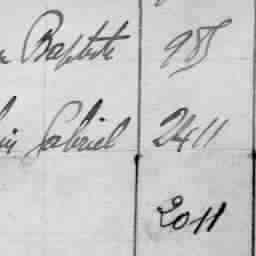 Baptiste 985
Gabriel 2411
2011